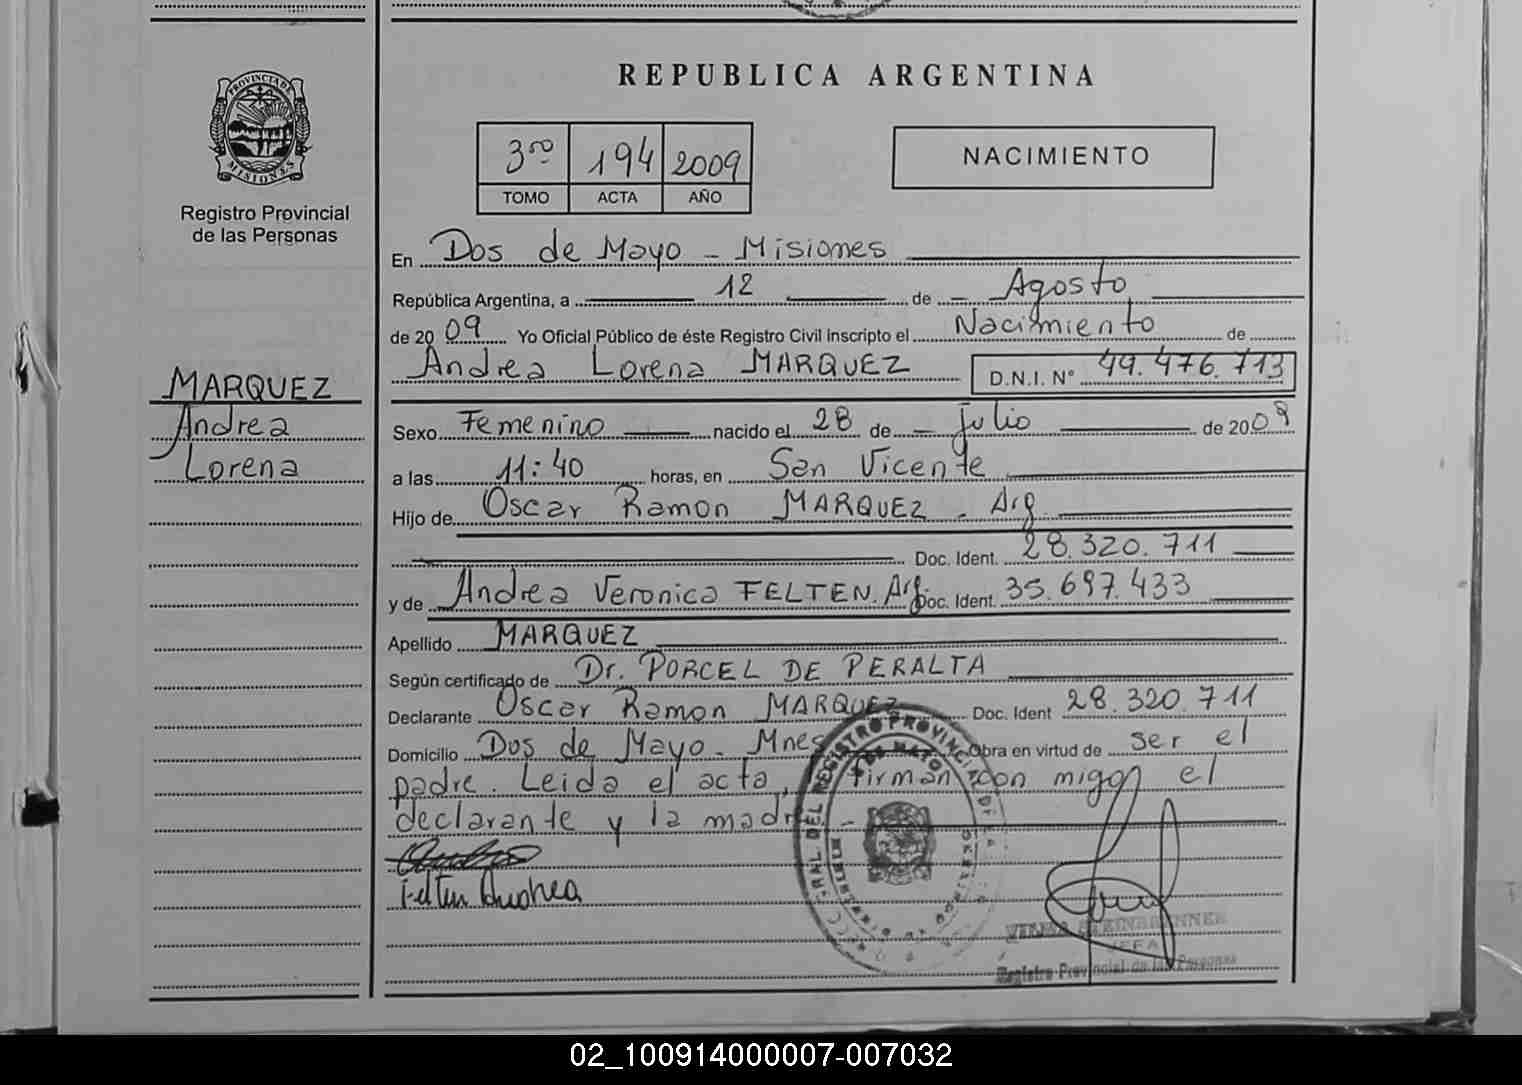 REPUBLICA ARGENTINA
PROVINCIA DE
MISIONES
Registro Provincial
de las Personas
3ro 194 2009
TOMO ACTA AÑO
NACIMIENTO
En Dos de Mayo - Misiones
República Argentina, a 12 de - Agosto
de 2009 Yo Oficial Público de éste Registro Civil Inscripto el Nacimiento de
Andrea Lorena MARQUEZ D.N.I. N° 49.476.713
MARQUEZ
Andrea
Lorena
Sexo Femenino nacido el 28 de - Julio de 2009
a las 11:40 horas, en San Vicente
Hijo de Oscar Ramon MARQUEZ - Arg.
Doc. Ident. 28.320.711
y de Andrea Veronica FELTEN. Arg. Doc. Ident. 35.697.433
Apellido MARQUEZ
Según certificado de Dr. PORCEL DE PERALTA
Declarante Oscar Ramon MARQUEZ Doc. Ident 28.320.711
Domicilio Dos de Mayo - Mnes Obra en virtud de ser el
padre. Leida el acta, firman con migo el
declarante y la madre
Felten Andrea
STEINBRENNER
JEFA
Registro Provincial de las Personas
02_100914000007-007032